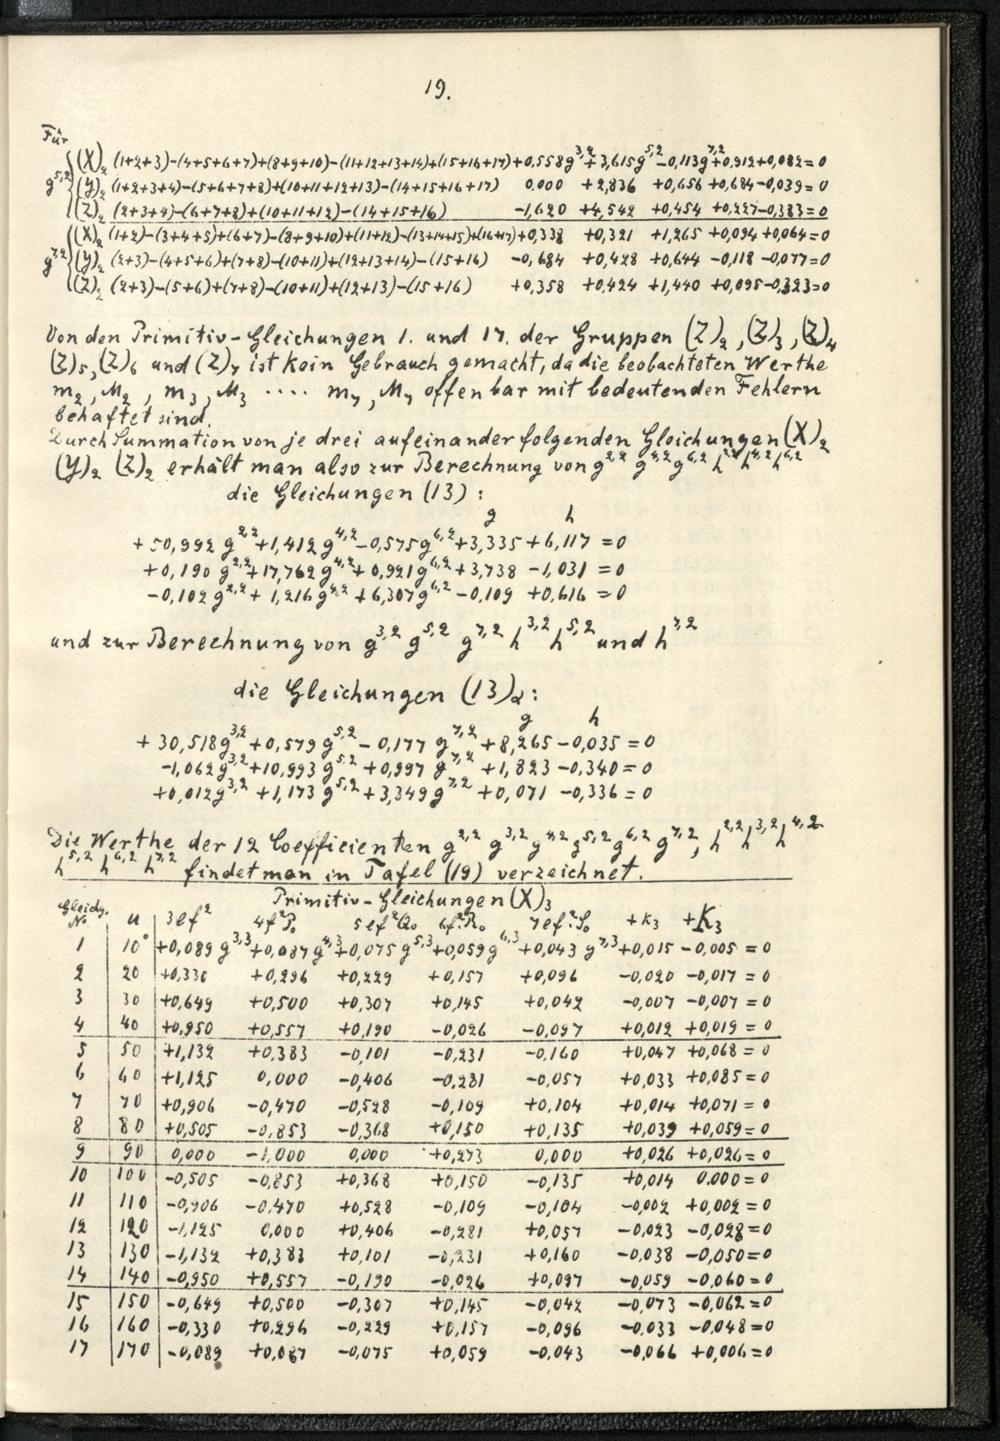 19.
Für
g^5,2 { (X)₂ (1+2+3)-(4+5+6+7)+(8+9+10)-(11+12+13+14)+(15+16+17)+0,558g^3,2+3,615g^5,2-0,113g^7,2+0,912+0,082=0
(Y)₂ (1+2+3+4)-(5+6+7+8)+(10+11+12+13)-(14+15+16+17) 0,000 +2,836 +0,656 +0,684-0,039=0
(Z)₂ (2+3+4)-(6+7+8)+(10+11+12)-(14+15+16) -1,620 +4,542 +0,454 +0,227-0,383=0
g^7,2 { (X)₂ (1+2)-(3+4+5)+(6+7)-(8+9+10)+(11+12)-(13+14+15)+(16+17)+0,338 +0,321 +1,265 +0,094 +0,064=0
(Y)₂ (2+3)-(4+5+6)+(7+8)-(10+11)+(12+13+14)-(15+16) -0,684 +0,428 +0,644 -0,118 -0,077=0
(Z)₂ (2+3)-(5+6)+(7+8)-(10+11)+(12+13)-(15+16) +0,358 +0,424 +1,440 +0,095-0,323=0
Von den Primitiv-Gleichungen 1. und 17. der Gruppen (Z)₂,(Z)₃,(Z)₄
(Z)₅,(Z)₆ und (Z)₇ ist kein Gebrauch gemacht, da die beobachteten Werthe
m₂, M₂, m₃, M₃ .... m₇, M₇ offenbar mit bedeutenden Fehlern
behaftet sind.
Durch Summation von je drei aufeinander folgenden Gleichungen (X)₂
(Y)₂ (Z)₂ erhält man also zur Berechnung von g^2,2 g^4,2 g^6,2 h^2,2 h^4,2 h^6,2
die Gleichungen (13):
g h
+50,992 g^2,2+1,412g^4,2-0,575g^6,2+3,335+6,117=0
+0,190 g^2,2+17,762g^4,2+0,921g^6,2+3,738-1,031=0
-0,102g^2,2+1,216g^4,2+6,307g^6,2-0,109+0,616=0
und zur Berechnung von g^3,2 g^5,2 g^7,2 h^3,2 h^5,2 und h^7,2
die Gleichungen (13)α:
g h
+30,518g^3,2+0,579g^5,2-0,177g^7,2+8,265-0,035=0
-1,062g^3,2+10,993g^5,2+0,997g^7,2+1,823-0,340=0
+0,012g^3,2+1,173g^5,2+3,349g^7,2+0,071-0,336=0
Die Werthe der 12 Coefficienten g^2,2 g^3,2 g^4,2 g^5,2 g^6,2 g^7,2, h^2,2 h^3,2 h^4,2
h^5,2 h^6,2 h^7,2 findet man in Tafel (19) verzeichnet.
Primitiv-Gleichungen (X)₃
Gleichg. No u 3ef² 4f²P₀ 5ef²Q₀ 6f²R₀ 7ef²S₀ +k₃ +K₃
1 10° +0,089 g^3,3+0,087g^4,3+0,075g^5,3+0,059g^6,3+0,043g^7,3+0,015 -0,005=0
2 20 +0,330 +0,296 +0,229 +0,157 +0,096 -0,020 -0,017=0
3 30 +0,649 +0,500 +0,307 +0,145 +0,042 -0,007 -0,007=0
4 40 +0,950 +0,557 +0,190 -0,026 -0,097 +0,012 +0,019=0
5 50 +1,132 +0,383 -0,101 -0,231 -0,160 +0,047 +0,068=0
6 60 +1,125 0,000 -0,406 -0,281 -0,057 +0,033 +0,085=0
7 70 +0,906 -0,470 -0,528 -0,109 +0,104 +0,014 +0,071=0
8 80 +0,505 -0,853 -0,368 +0,150 +0,135 +0,039 +0,059=0
9 90 0,000 -1,000 0,000 +0,273 0,000 +0,026 +0,026=0
10 100 -0,505 -0,853 +0,368 +0,150 -0,135 +0,014 0,000=0
11 110 -0,906 -0,470 +0,528 -0,109 -0,104 -0,002 +0,002=0
12 120 -1,125 0,000 +0,406 -0,281 +0,057 -0,023 -0,028=0
13 130 -1,132 +0,383 +0,101 -0,231 +0,160 -0,038 -0,050=0
14 140 -0,950 +0,557 -0,190 -0,026 +0,097 -0,059 -0,060=0
15 150 -0,649 +0,500 -0,307 +0,145 -0,042 -0,073 -0,062=0
16 160 -0,330 +0,296 -0,229 +0,157 -0,096 -0,033 -0,048=0
17 170 -0,089 +0,087 -0,075 +0,059 -0,043 -0,066 +0,006=0